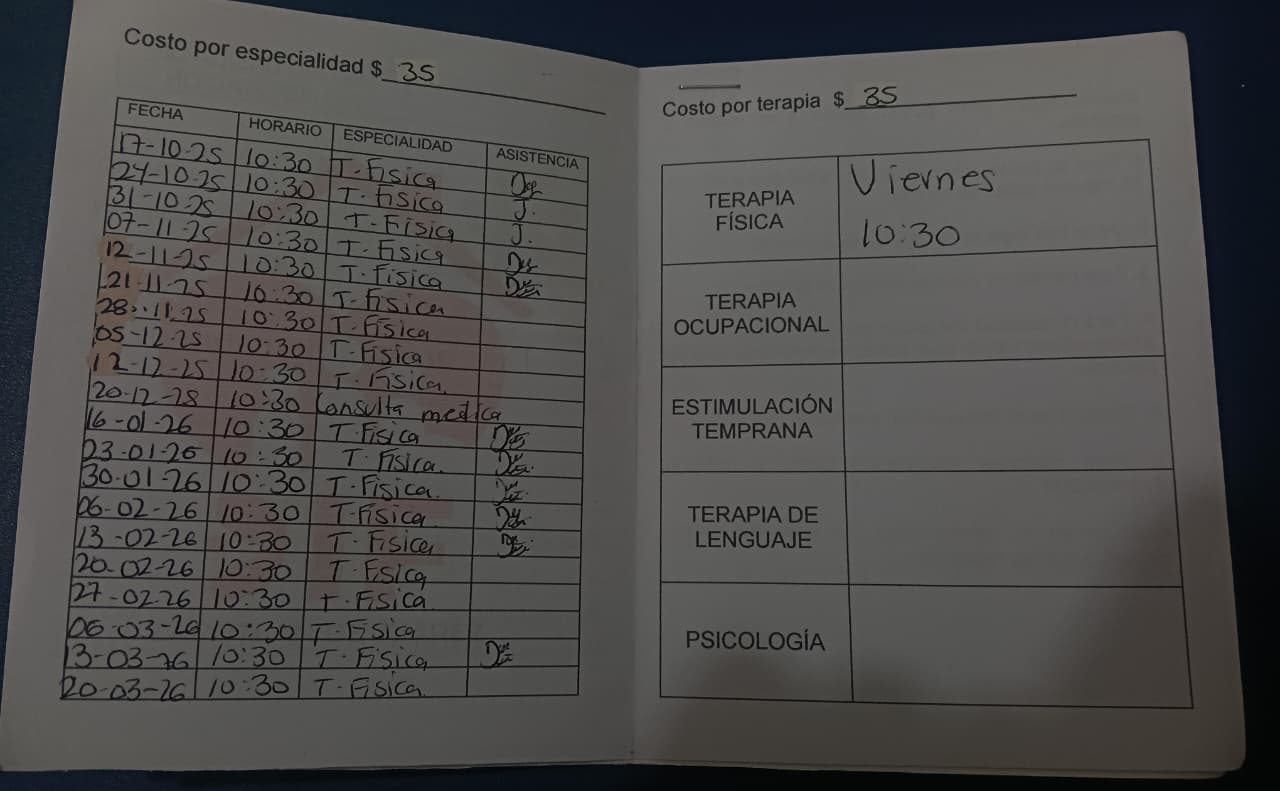 Costo por especialidad $ 35
FECHA HORARIO ESPECIALIDAD ASISTENCIA
17-10-25 10:30 T-Física
24-10-25 10:30 T-Física J.
31-10-25 10:30 T-Física J.
07-11-25 10:30 T-Física
12-11-25 10:30 T-Física
21-11-25 10:30 T-Física
28-11-25 10:30 T-Física
05-12-25 10:30 T-Física
12-12-25 10:30 T-Física.
20-12-28 10:30 Consulta medica
16-01-26 10:30 T-Física
23-01-26 10:30 T-Física.
30-01-26 10:30 T-Física.
06-02-26 10:30 T-Física
13-02-26 10:30 T-Física
20-02-26 10:30 T-Física
27-02-26 10:30 T-Física
06-03-26 10:30 T-Física
13-03-26 10:30 T-Física
20-03-26 10:30 T-Física
Costo por terapia $ 35
TERAPIA
FÍSICA
Viernes
10:30
TERAPIA
OCUPACIONAL
ESTIMULACIÓN
TEMPRANA
TERAPIA DE
LENGUAJE
PSICOLOGÍA